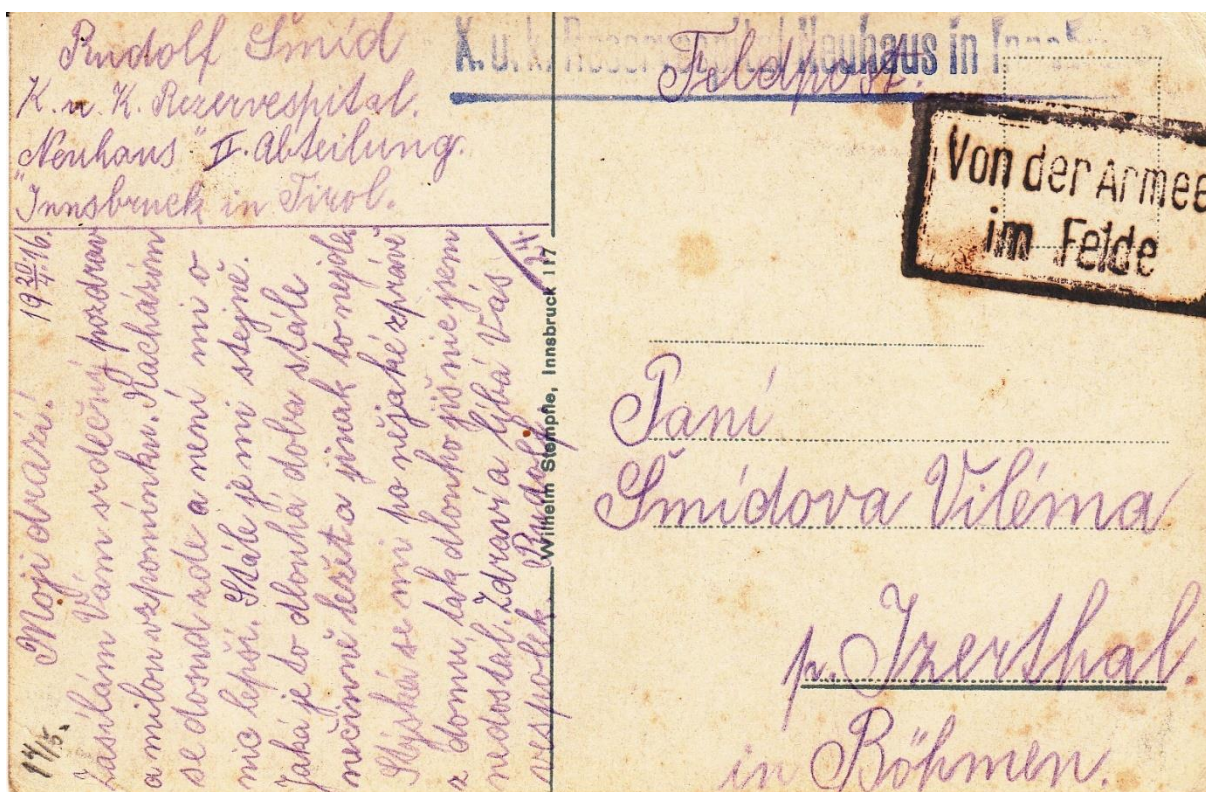 Rudolf Šmíd
K. u. K. Rezervespital.
"Neuhaus" II. Abteilung.
Innsbruck in Tirol.
K.u.k. Reservespital Neuhaus in
Feldpost.
Von der Armee
im Felde
Moji drazí! 19 20/4. 16.
Zasílám Vám srdečný pozdrav
a milou vzpomínku. Nacházím
se dosud zde a není mi o
nic lepší. Stále je mi stejně.
Jaká je to dlouhá doba stále
nečinně ležet a jinak to nejde
Stýská se mi po nějaké zprávě
z domů, tak dlouho již nic jsem
nedostal. Zdraví a líbá Vás
vespolek Rudolf
14/5.
Wilhelm Stempfle, Innsbruck 117
Paní
Šmídova Viléma
p. Izerthal.
in Böhmen.